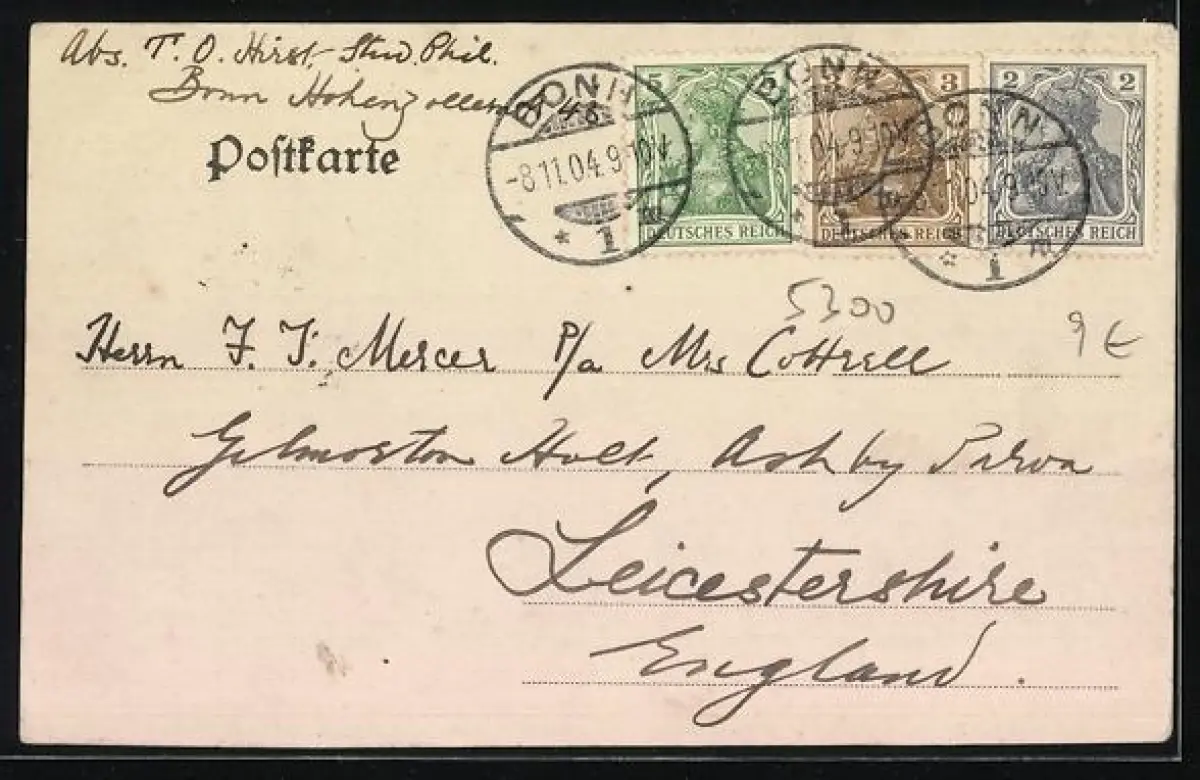 Abs. T. O. Hirst. Stud. Phil.
Bonn Hohenzollernstr 48
Postkarte
BONN
-8.11.04.9-10V.
* 1 m
5 5
DEUTSCHES REICH
BONN
.04.9-10V.
* 1 m
3
DEUTSCHES REICH
BONN
.04.9-10V.
* 1 m
2 2
DEUTSCHES REICH
5300
9 €
Herrn F. J. Mercer P/a Mrs Cottrell
Gilmorton Holt, Ashby Parva
Leicestershire
England.